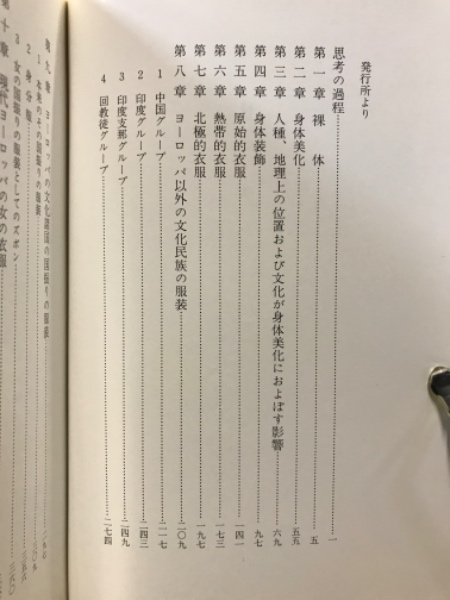 発行所より
思考の過程…一
第一章 裸体…五
第二章 身体美化…五五
第三章 人種、地理上の位置および文化が身体美化におよぼす影響…六九
第四章 身体装飾…九七
第五章 原始的衣服…一四一
第六章 熱帯的衣服…一七三
第七章 北極的衣服…一九七
第八章 ヨーロッパ以外の文化民族の服装…二〇九
1 中国グループ…二一七
2 印度グループ…二四三
3 印度支那グループ…二四九
4 回教徒グループ…二七四
第九章 ヨーロッパの文化諸国の国振りの服装
1 本来の
2 身分
3 女の国振りの服装としてのズボン
第十章 現代ヨーロッパの女の衣服